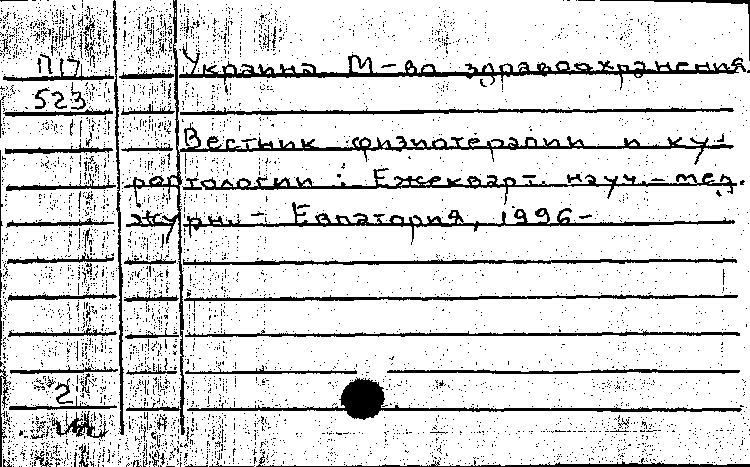 П17 Украина М-во здравоохранения
523
Вестник физиотерапии и ку-
рортологии : Ежекварт. науч.-мед.
журн. - Евпатория, 1996-
2